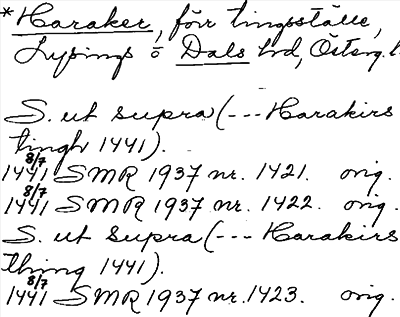 *Haraker, förr tingsställe,
Lysings o Dals hd, Österg. l.
S. ut supra (--- Harakirs
tingh 1441).
8/7
1441 SMR 1937 nr. 1421. orig.
8/7
1441 SMR 1937 nr. 1422. orig.
S. ut supra (--- Harakirs
Thing 1441).
8/7
1441 SMR 1937 nr. 1423. orig.